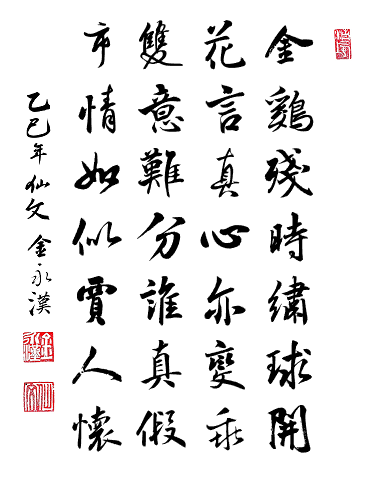 金鷄殘時繡球開
花言真心亦變乖
雙意難分誰真假
市情如似賈人懷
乙巳年 仙文 金永漢